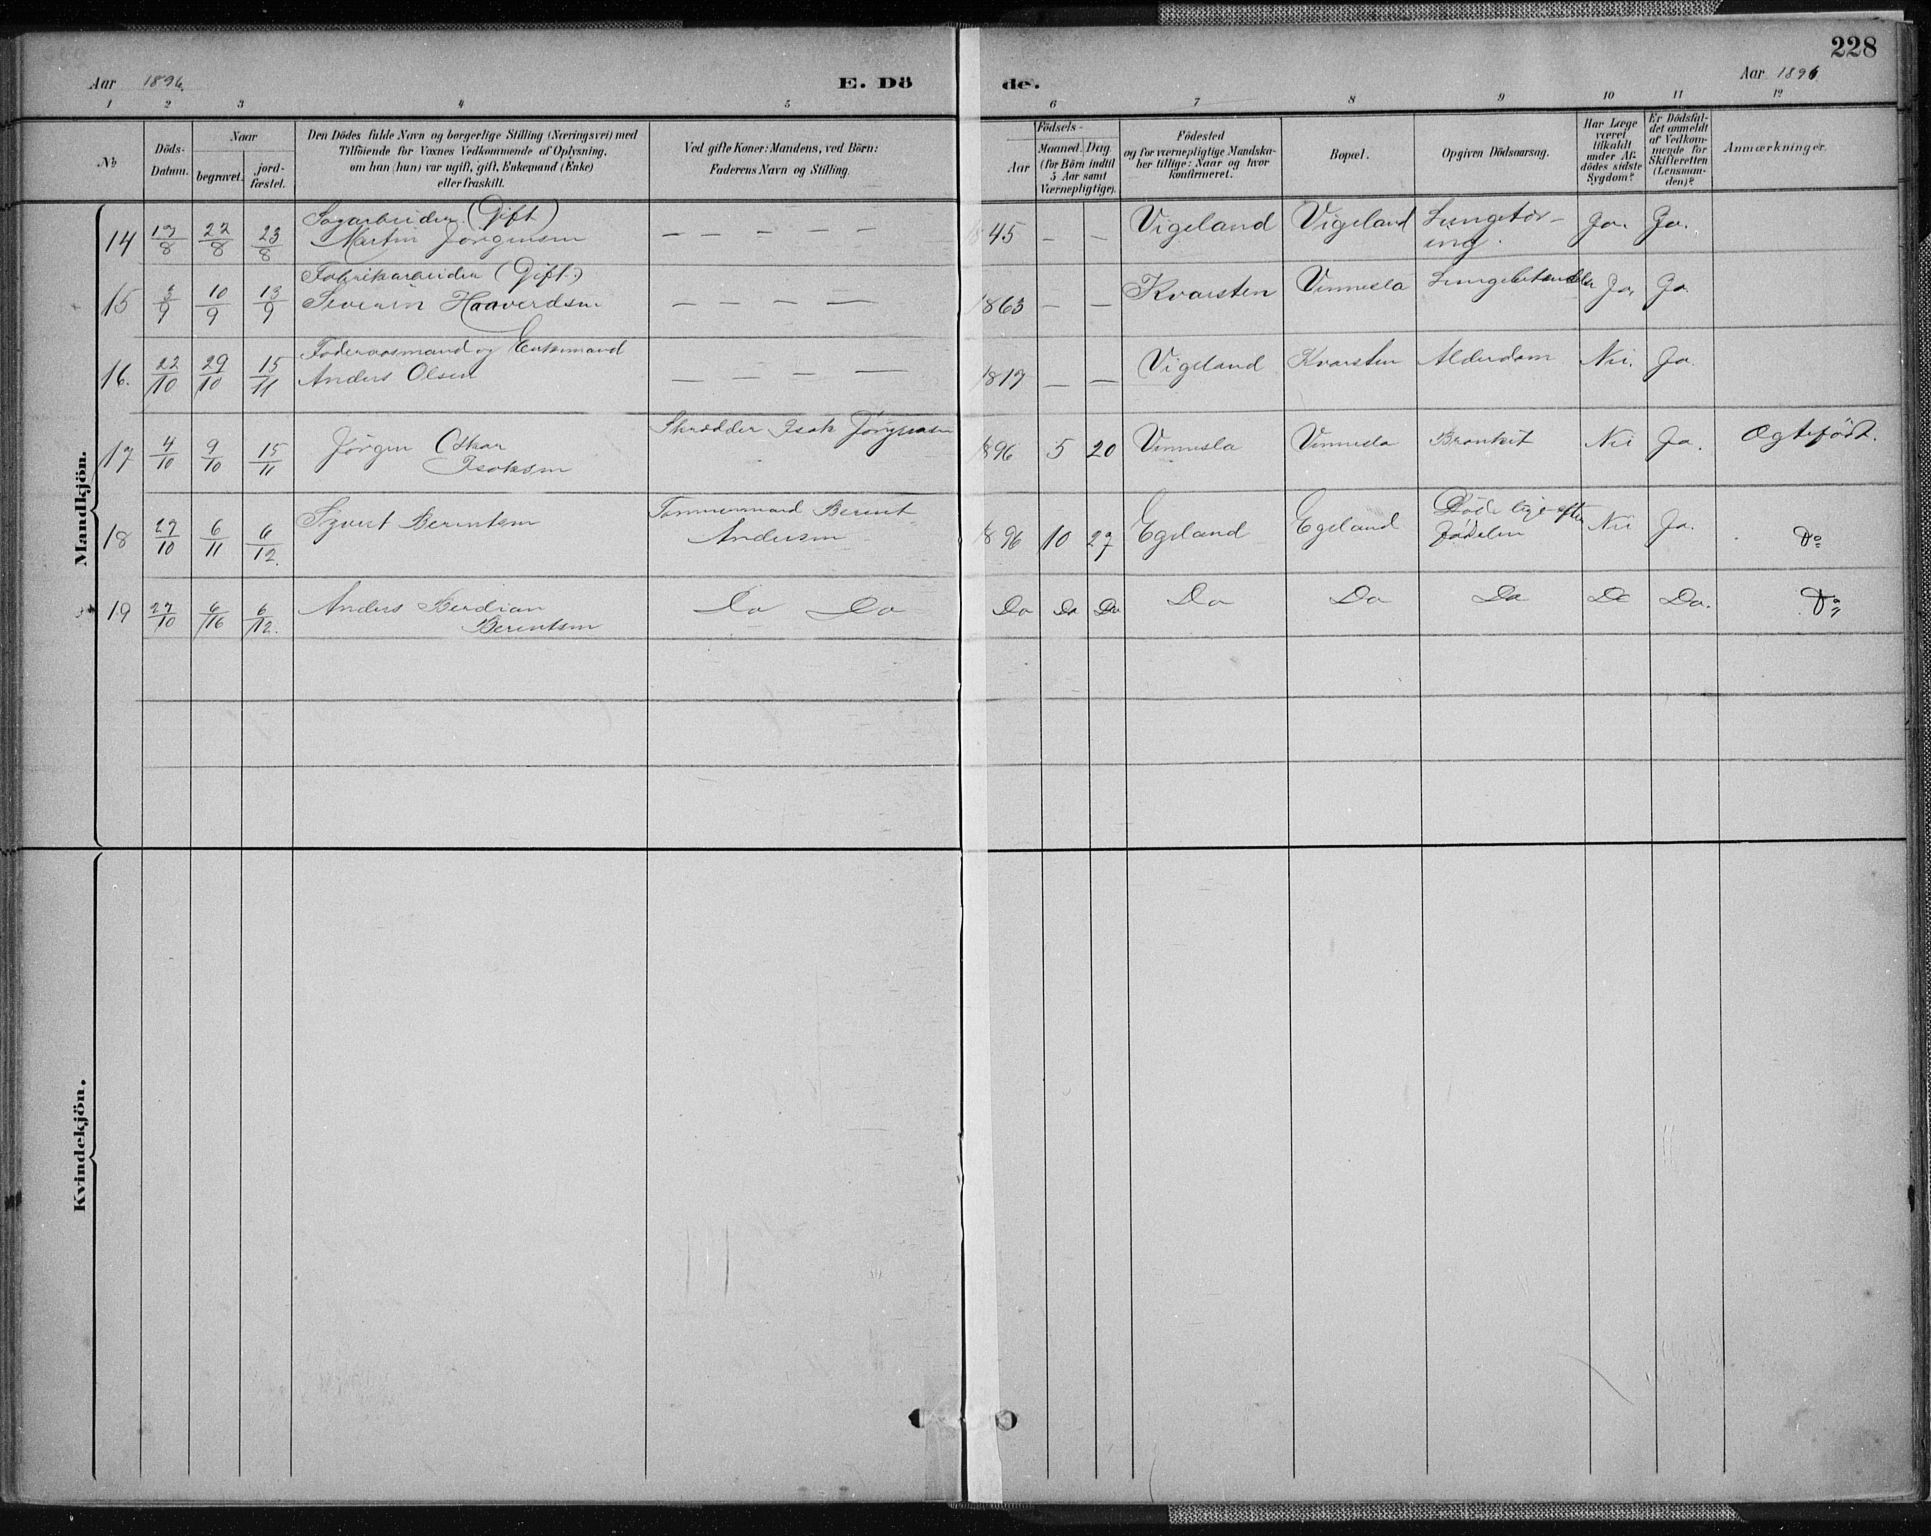 228
Aar 1896.
E. Dö
de.
Aar 1896
1 2 3 4 5 6 7 8 9 10 11 12
No
Döds-
Datum.
Naar
begravet.
jord-
fæstet.
Den Dödes fulde Navn og borgerlige Stilling (Næringsvei) med
Tilföiende for Voxnes Vedkommende af Oplysning,
om han (hun) var ugift, gift, Enkemand (Enke)
eller fraskilt.
Ved gifte Koner: Mandens, ved Börn:
Faderens Navn og Stilling.
Födsels-
Aar
Maaned. Dag
(for Börn indtil
5 Aar samt
Værnepligtige).
Födested
og for værnepligtige Mandska-
ber tillige: Naar og hvor
konfirmeret.
Bopæl.
Opgiven Dödsaarsag.
Har Læge
været
tilkaldt
under Af-
dödes sidste
Sygdom?
Er Dödsfal-
det anmeldt
af Vedkom-
mende for
Skifteretten
(Lensman-
den)?
Anmærkninger.
Mandkjön.
14 17/8 22/8 23/8 Sagarbeider (Gift)
Martin Jörgensen — — — — — 45 — — Vigeland Vigeland Lungetær-
ing. Ja. Ja.
15 3/9 10/9 13/9 Fabrikarbeider (Gift.)
Severin Haaverdsen — — — — 1863 — — Kvarsten Vennesla Ja, Ja.
16. 22/10 29/10 15/11 Föderaadsmand og Enkemand
Anders Olsen — — — — 1817 — — Vigeland Kvarsten Alderdom Nei. Ja.
17 4/10 9/10 15/11 Jörgen Oskar
Isaksen Skrædder Isak Jörgensen 1896 5 20 Vennesla Vennesla Bronkit Nei Ja. Ægtefödt.
18 27/10 6/11 6/12. Syvert Berentsen Tömmermand Berent
Andersen 1896 10 27 Egeland Egeland Döde lige efter
Födselen Nei Ja. Do
19 27/10 6/11 6/12. Anders Berdian
Berentsen Do Do Do Do Do Do Do Do Do Do. Do
Kvindekjön.